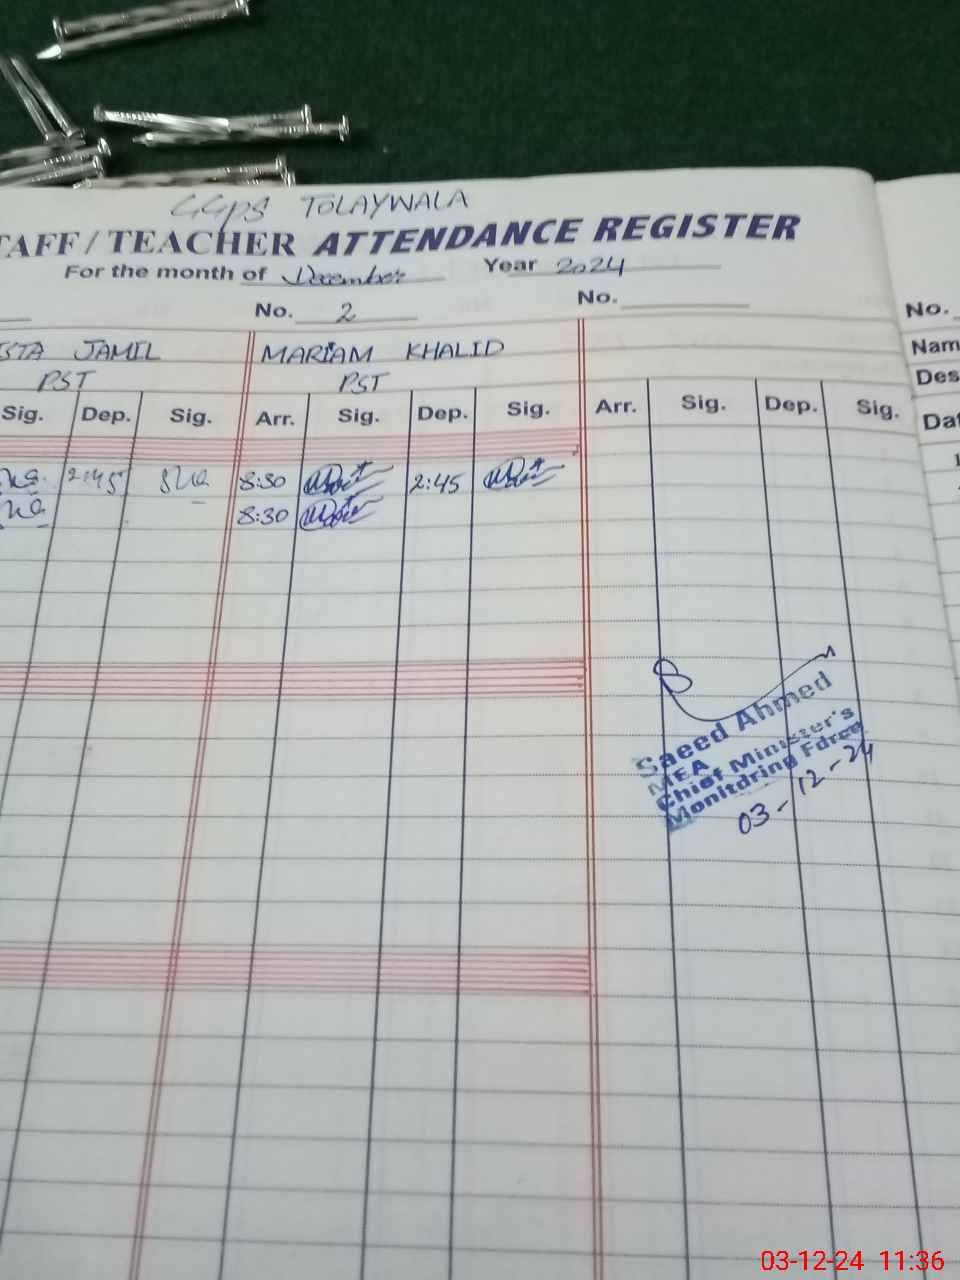 GGPS TOLAYWALA
TAFF / TEACHER ATTENDANCE REGISTER
For the month of December Year 2024
No. 2 No. No.
STA JAMIL MARIAM KHALID Nam
PST PST Des
Sig. Dep. Sig. Arr. Sig. Dep. Sig. Arr. Sig. Dep. Sig. Dat
2:45 8:30 2:45
8:30
Saeed Ahmed
MEA
Chief Minister's
Monitoring Force
03-12-24
03-12-24 11:36